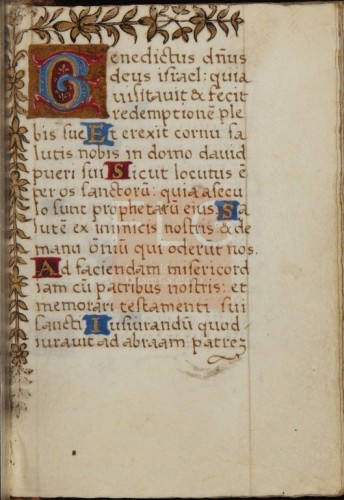 Benedictus dn̄us
deus israel: quia
visitavit & fecit
redemptionē ple
bis sue Et erexit cornu sa
lutis nobis in domo david
pueri sui Sicut locutus ē
per os sanctorū: quia a secu
lo sunt prophetarū eius. Sa
lutē ex inimicis nostris & de
manu oīniū qui oderūt nos.
Ad faciendam misericord
iam cū patribus nostris: et
memorari testamenti sui
sancti Iusiurandū quod
iuravit ad abraam patrez